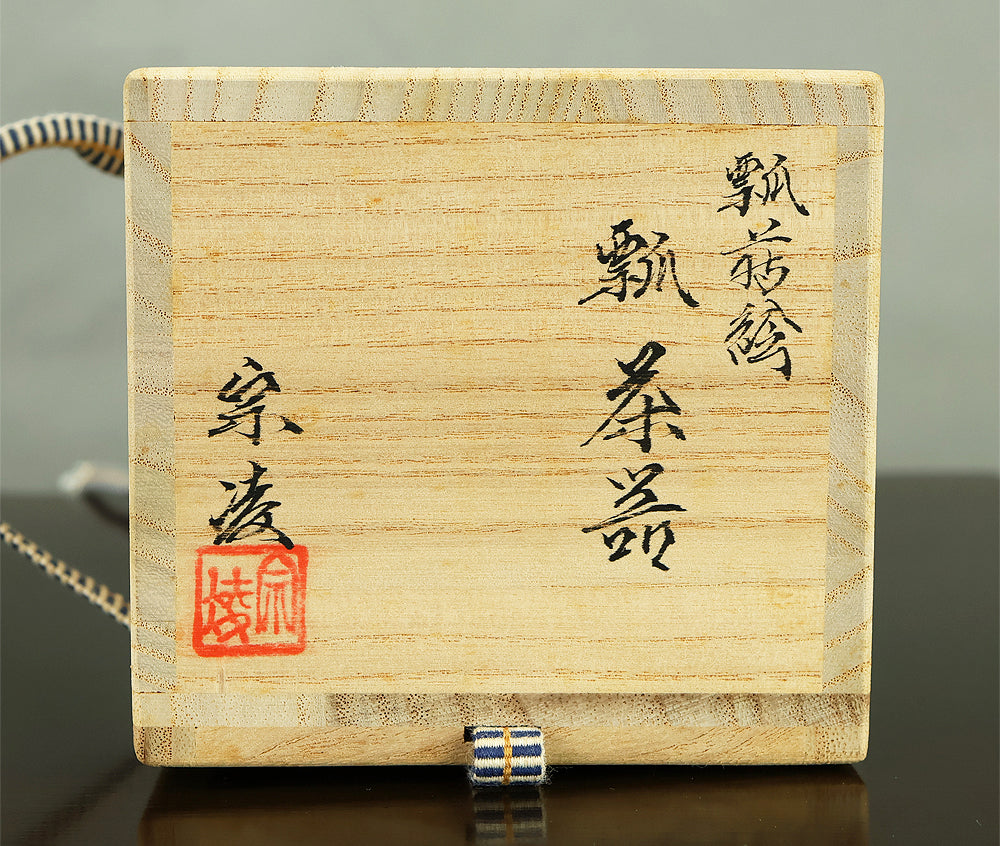 瓢蒔絵
瓢茶器
宗凌
宗凌